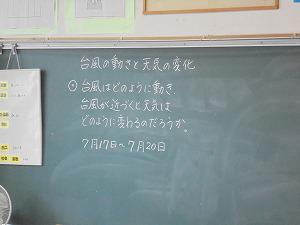 台風の動きと天気の変化
⊙台風はどのように動き、
台風が近づくと天気は
どのように変わるのだろうか。
7月17日～7月20日